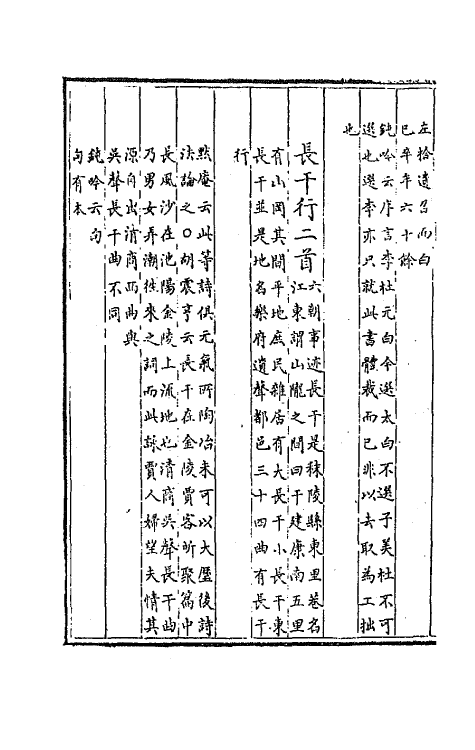 左拾遺召而白
已卒年六十餘
鈍吟云序言李杜元白今選太白不選子美杜不可
選也選李亦只就此書體裁而已非以去取為工拙
也
長干行二首
六朝事迹長干是秣陵縣東里巷名
江東謂山隴之間曰干建康南五里
有山岡其間平地庶民雜居有大長干小長干東
長干並是地名樂府遺聲都邑三十四曲有長干
行
默庵云此等詩俱元氣所陶冶未可以大曆後詩
法論之〇胡震亨云長干在金陵賈客所聚篇中
長風沙在池陽金陵上流地也清商吳聲長干曲
乃男女弄潮往來之詞而此詠賈人婦望夫情其
源自出清商西曲與
吳聲長干曲不同
鈍吟云句
句有本